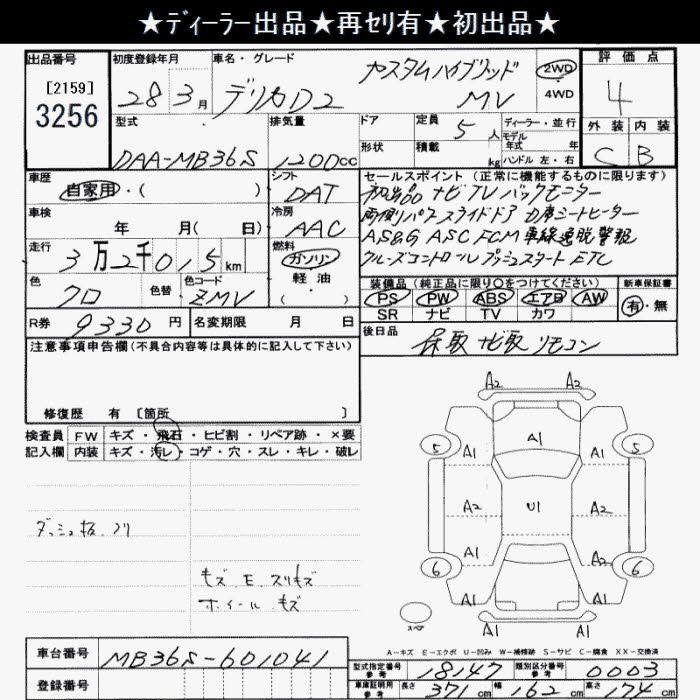 ★ディーラー出品★再セリ有★初出品★
出品番号 初度登録年月 車名・グレード 評価点
[2159] 28 3月 デリカD2 カスタムハイブリッド MV 2WD 4WD 4
3256
型式 排気量 ドア 定員 5人 ディーラー・並行 外装 内装
モデル年式 年
DAA-MB36S 1200cc 形状 積載 kg ハンドル 左・右 C B
車歴 自家用・( ) シフト DAT セールスポイント (正常に機能するものに限ります)
ナビ TV バックモニター
両側パワースライドドア シートヒーター
AS&G ASC FCM 車線逸脱警報
クルーズコントロール プッシュスタート ETC
車検 年 月( 日) 冷房 AAC
走行 3万2千015km 燃料 ガソリン 軽油 ( )
色 クロ 色替 色コード ZMV
装備品 (純正品に限り○をつけてください) 新車保証書
PS PW ABS エアB AW 有・無
SR ナビ TV カワ
R券 9330円 名変期限 月 日 後日品 保取 ナビ取 リモコン
注意事項申告欄(不具合内容等は具体的に記入して下さい)
修復歴 有 [箇所 ]
検査員記入欄 FW キズ・飛石・ヒビ割・リペア跡・×要
内装 キズ・汚レ・コゲ・穴・スレ・キレ・破レ
A2 A2
5 A1 A1 A1 5
A2 U1 A2
6 A1 A1 6
A1 A1 A1 A1
スペア
キズ E スリキズ
ホイール キズ
A-キズ E-エクボ U-凹み W-補修跡 S-サビ C-腐食 XX-交換済
車台番号 MB36S-601041
登録番号
型式指定番号 参考 18147 類別区分番号 参考 0003
車庫証明用 参考 長さ 371cm 幅 162cm 高さ 174cm